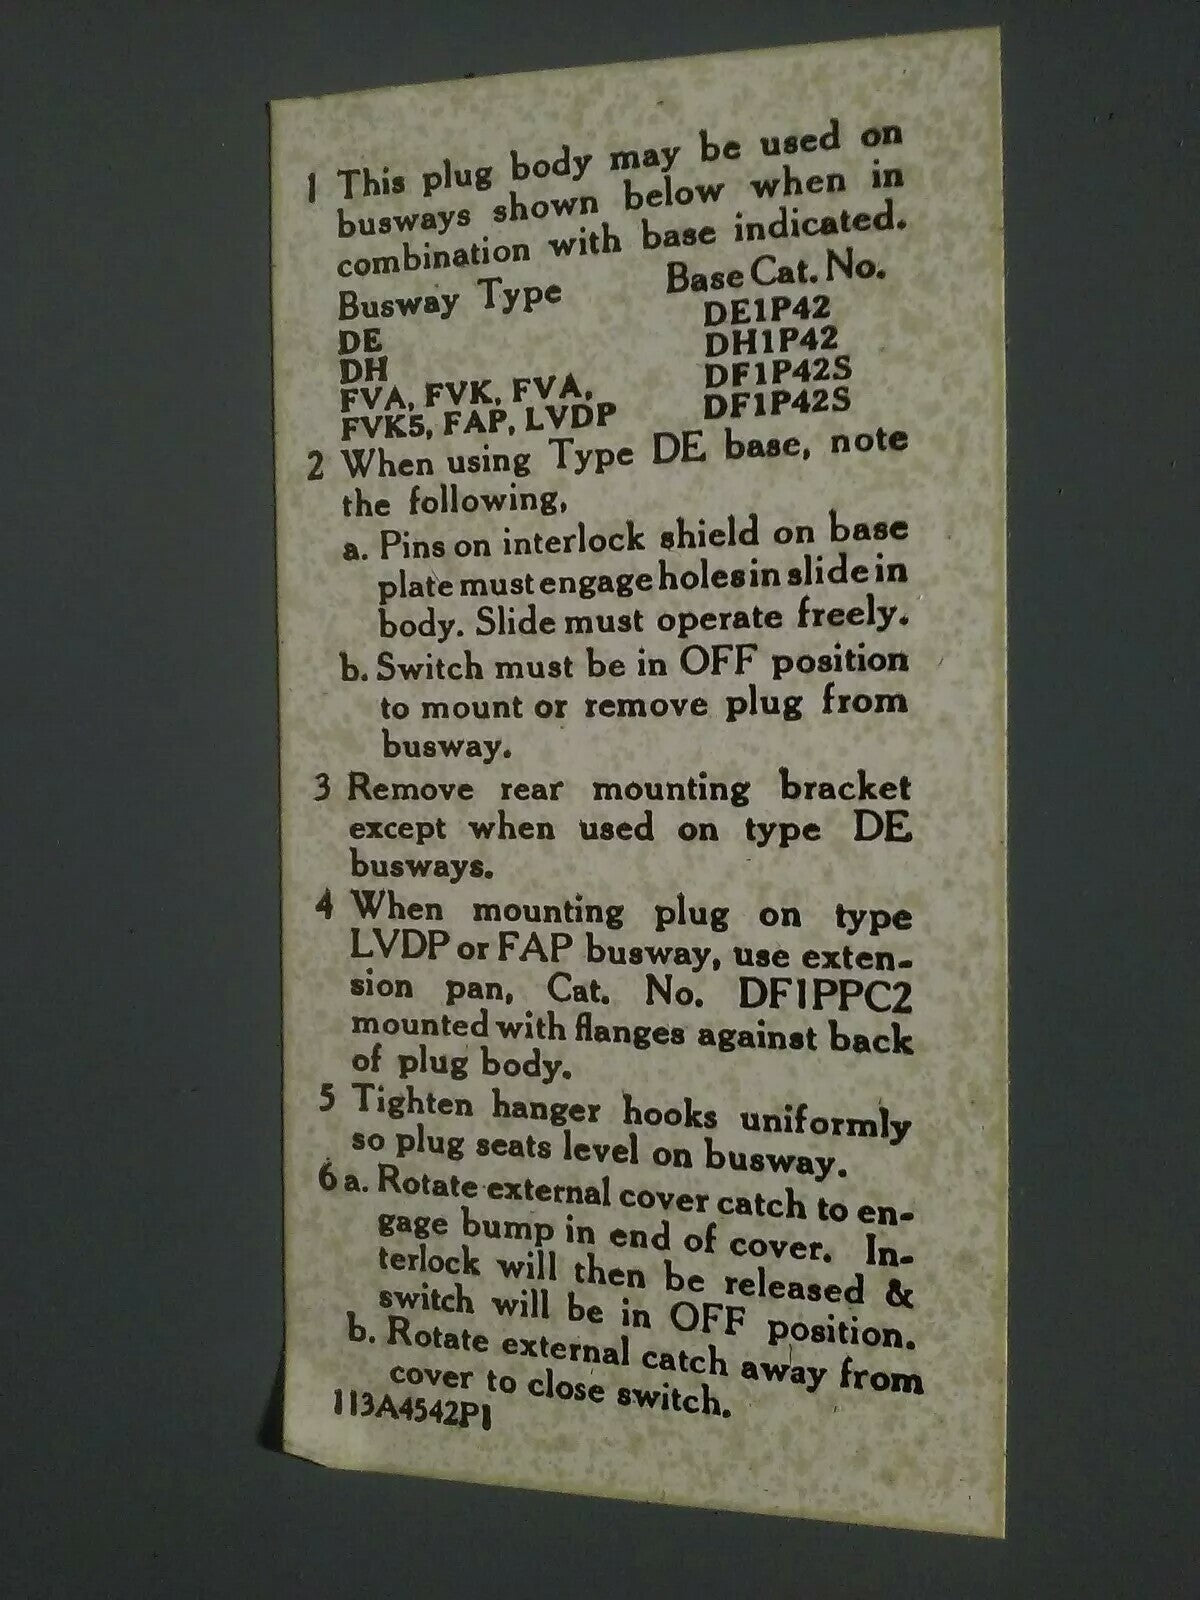 1 This plug body may be used on
busways shown below when in
combination with base indicated.
Busway Type Base Cat. No.
DE DE1P42
DH DH1P42
FVA, FVK, FVA, DF1P42S
FVK5, FAP, LVDP DF1P42S
2 When using Type DE base, note
the following,
a. Pins on interlock shield on base
plate must engage holes in slide in
body. Slide must operate freely.
b. Switch must be in OFF position
to mount or remove plug from
busway.
3 Remove rear mounting bracket
except when used on type DE
busways.
4 When mounting plug on type
LVDP or FAP busway, use exten-
sion pan, Cat. No. DF1PPC2
mounted with flanges against back
of plug body.
5 Tighten hanger hooks uniformly
so plug seats level on busway.
6 a. Rotate external cover catch to en-
gage bump in end of cover. In-
terlock will then be released &
switch will be in OFF position.
b. Rotate external catch away from
cover to close switch.
113A4542P1